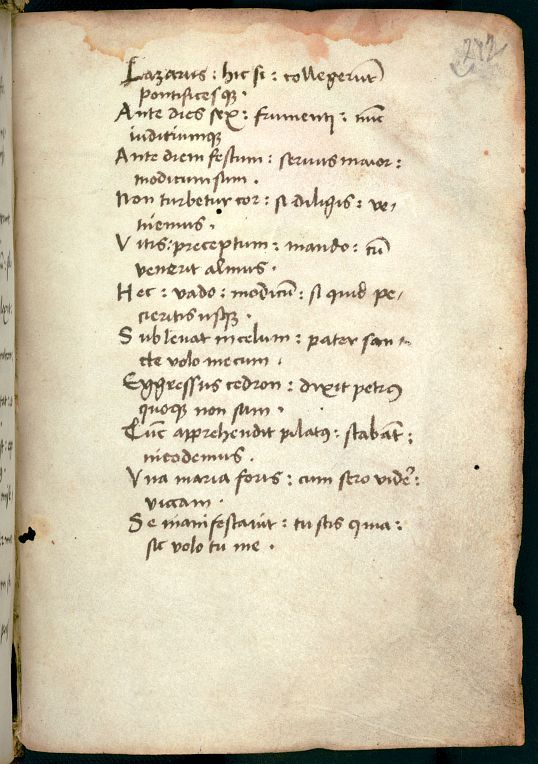 242
Lazarus : hic si : collegerūt
pontificesq̄ .
Ante dies sex : frumenti : nūc
iuditiumq̄
Ante diem festum : seruus maior :
modicum sum .
Non turbetur cor : si diligis : ve-
niemus .
Vitis : preceptum : mando : cū
venerit almus .
Hec : vado : modicū : si quid pe-
cieritis usq̄ .
Subleuat in celum : pater san
cte volo mecum .
Eggressus cedron : dixit petrꝰ
quoq̄ non sum .
Tūc apprehendit pilatꝰ : stabāt :
nicodemus .
Vna maria foris : cum sero
Se manifestauit : tu scis quia :
sic volo tu me .